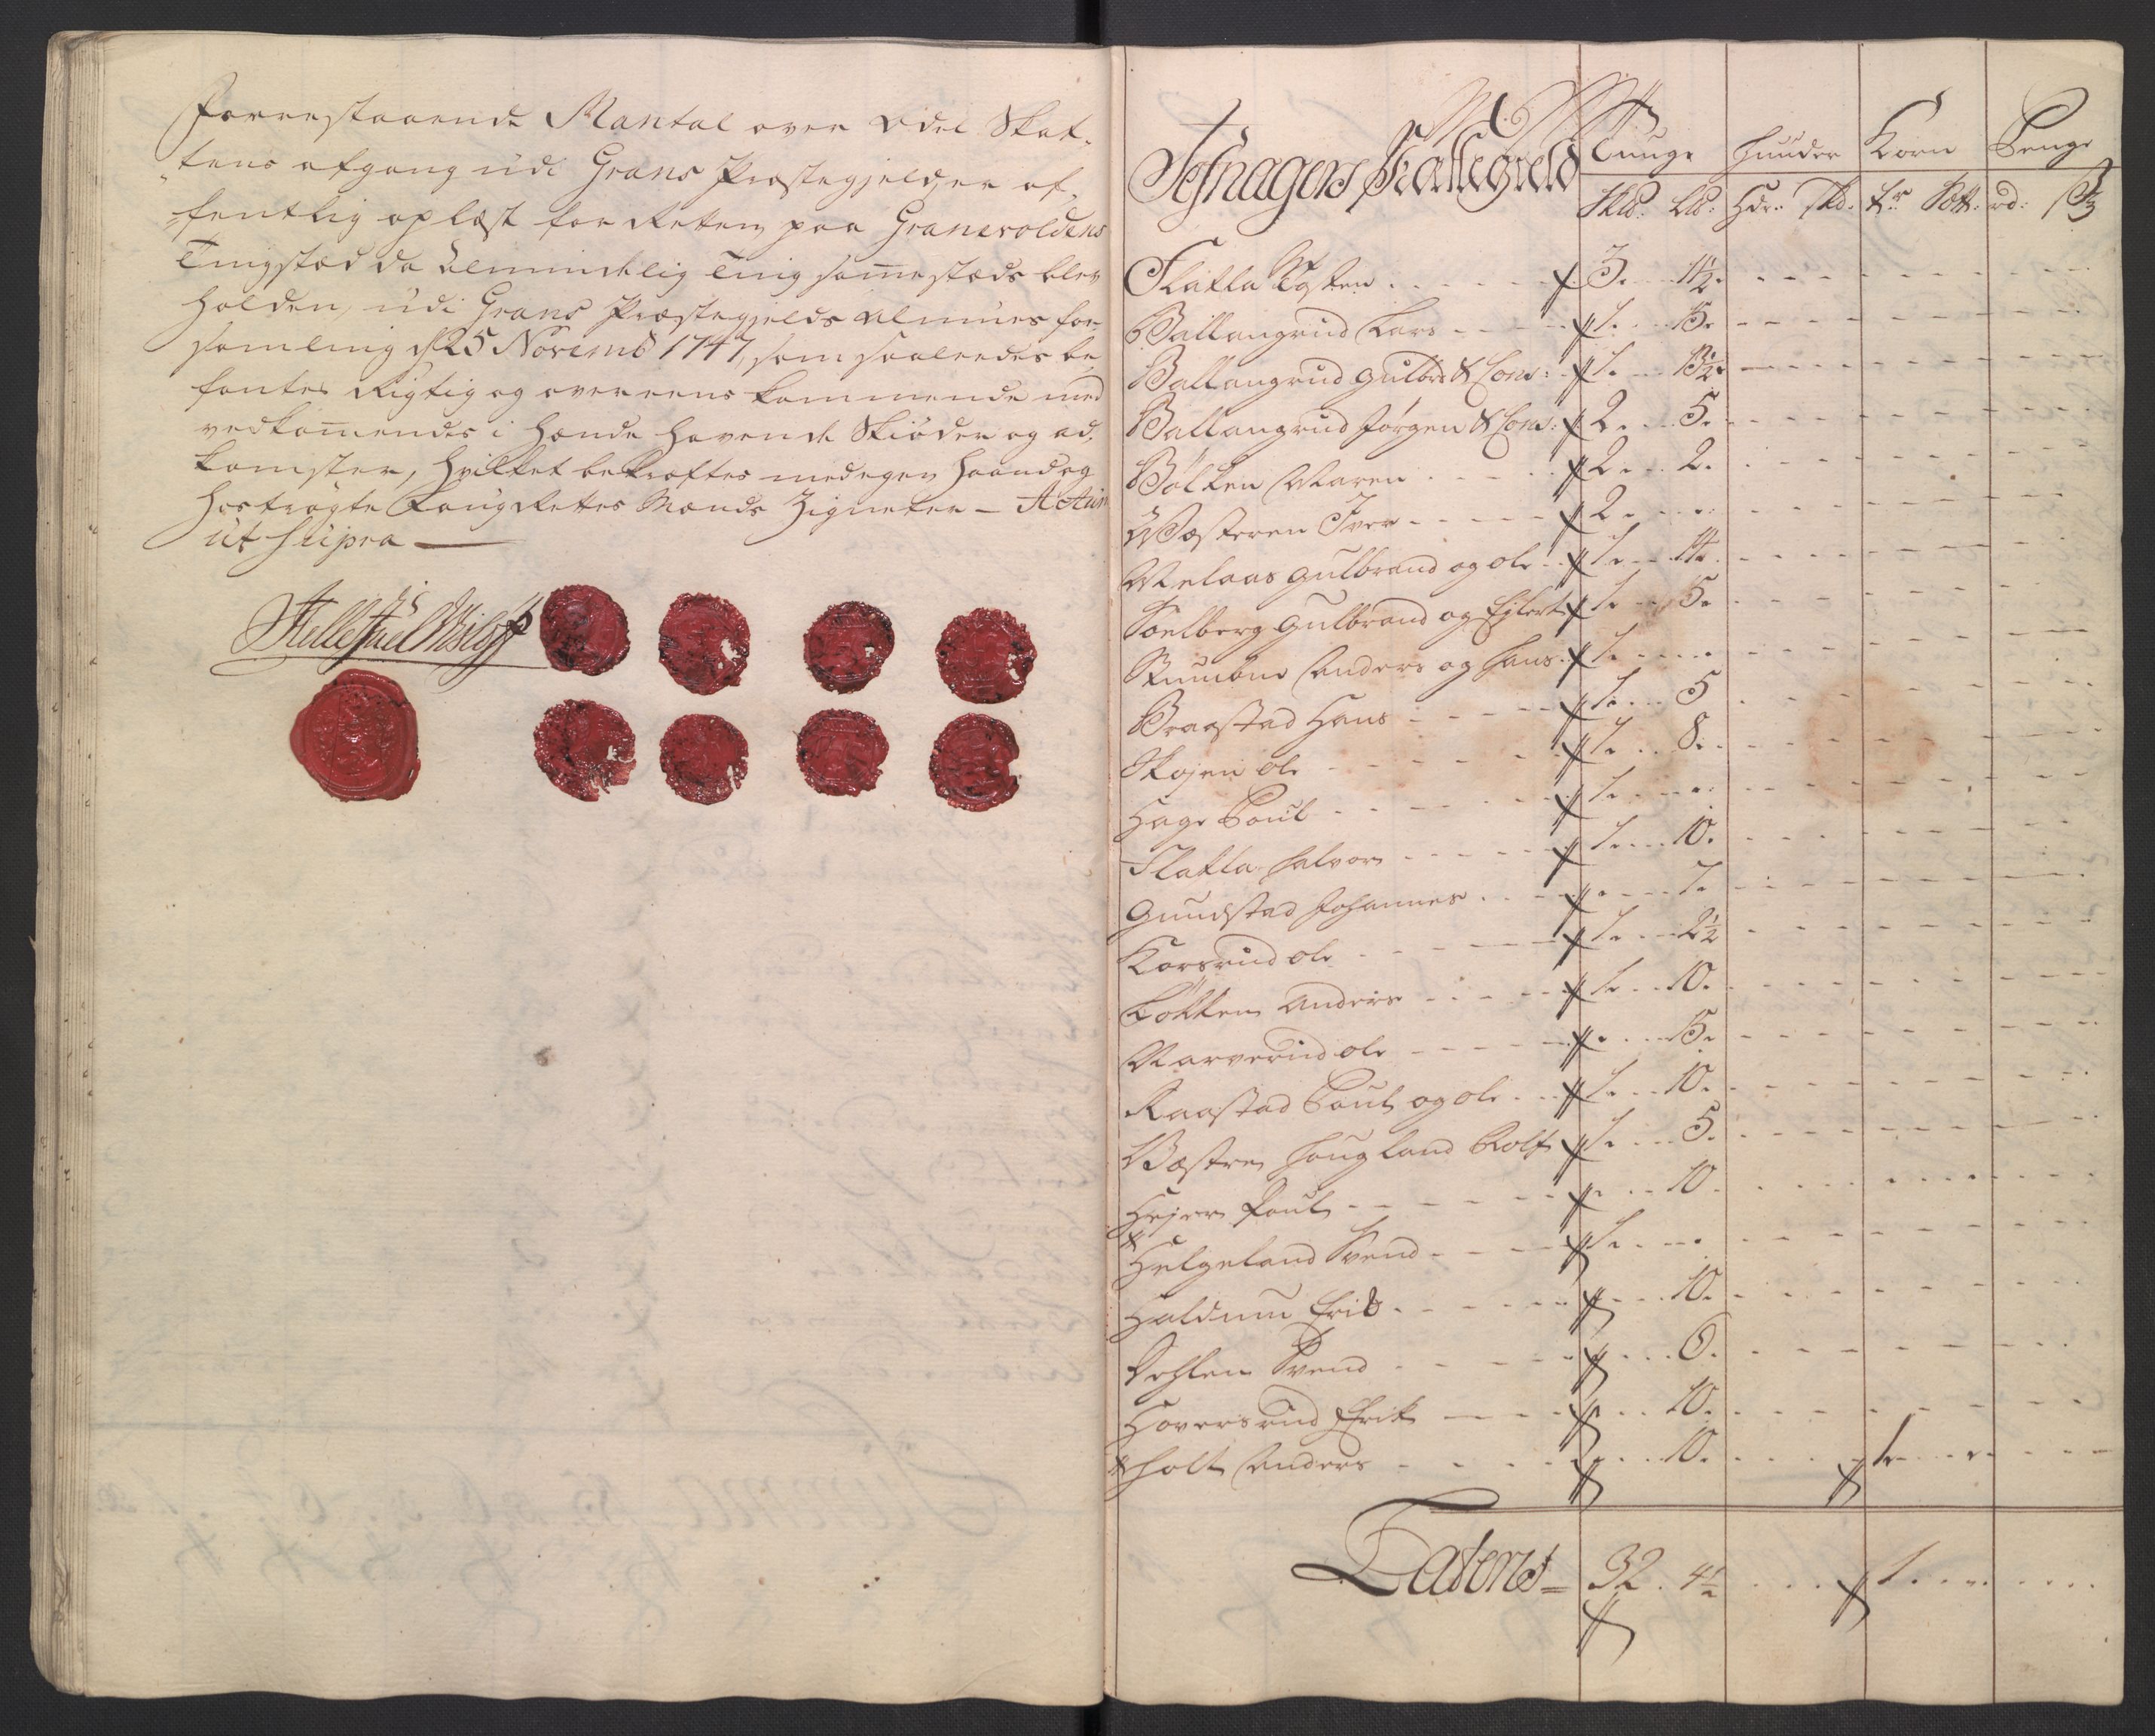 Forrestaaende Mantal over Odel Skat-
tens afgang udi Grans Præstegjeld, er of-
fentlig oplæst for Retten paa Granevoldens
Tingstæd da Almindelig Ting sammestæds blev
holden, udi Grans Præstegjelds Almues for-
samling d 25 Novemb 1747, som saaledes be-
fantes Rigtig og overeens kommende med
vedkommendes i Hænde havende Skiøder og ad-
komster, hvilket bekræftes med egen Haand og
hostrygte Laug Rettes Mænds Zigneter - Actum
ut supra
Jefnagers Præstegield
Tunge Huuder Korn Penge
Skd: Ld: Hdr: Skd: tr Sett: rd: β
Flatla Torsten 3. 1½.
Ballangrud Lars 1. 15.
Ballangrud Gulbr: & Cons: 1. 13½.
Ballangrud Jørgen & Cons: 2. 5.
Bølken Maren 2. 2.
Wæsteren Iver 2.
Melaas Gulbrand og Ole 1. 14.
Soelberg Gulbrand og Eilert 1. 5.
Anders og Hans 1.
Braastad Hans 1. 5
Skøjen Ole 1. 8.
Hage Poul 1.
Flatla Halvor 1. 10.
Guudstad Johannes 7.
Korsrud Ole 1. 2½
Løkken Anders 1. 10.
Marverud Ole 15.
Raastad Poul og Ole 1. 10.
Væstre Hougland Rolf 1. 5.
Hejer Poul 10.
Helgeland Svend 1.
Haldum Erik 10.
Dehlen Svend 6.
Hoversrud Erik 10.
Holt Anders 10. 1
Lateris 32. 4½ 1